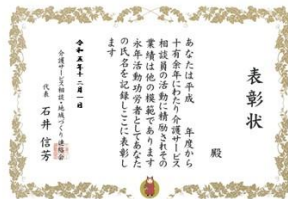 表彰状
殿
あなたは平成　年度から
十有余年にわたり介護サービス
相談員の活動に精励されその
業績は他の模範であります
永年活動功労者としてあなた
の氏名を記録しここに表彰し
ます
令和五年十二月一日
介護サービス相談・地域づくり連絡会
代表 石井信芳